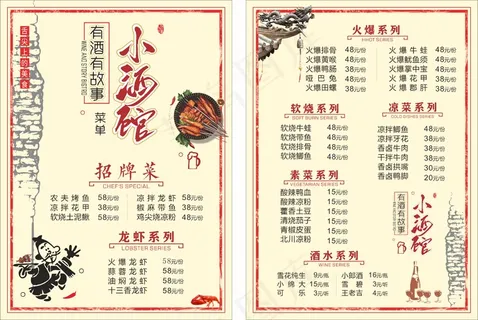 舌尖上的美食
有酒有故事
WINE AND STORY BISTRO
菜单
小酒馆
招牌菜
CHEF'S SPECIAL
农夫烤鱼 58元/份
凉拌花甲 38元/份
软烧土泥鳅 58元/份
凉拌龙虾 58元/份
椒麻带鱼 38元/份
鸡尖烧凉粉 48元/份
龙虾系列
LOBSTER SERIES
火爆龙虾 58元/份
蒜蓉龙虾 58元/份
油焖龙虾 58元/份
十三香龙虾 58元/份
火爆系列
HHOT SERIES
火爆排骨 48元/份
火爆黄喉 48元/份
火爆鸭肠 48元/份
哑巴兔 48元/份
火爆田螺 38元/份
火爆牛蛙 48元/份
火爆鱿鱼须 48元/份
火爆掌中宝 48元/份
火爆花甲 48元/份
火爆郡肝 38元/份
软烧系列
SOFT BURN SERIES
软烧牛蛙 48元/份
软烧带鱼 48元/份
软烧排骨 48元/份
软烧鲫鱼 48元/份
凉菜系列
COLD DISHES SERIES
凉拌鲫鱼 48元/份
凉拌牙花 38元/份
香卤牛肉 48元/份
干拌牛肉 38元/份
香卤拱嘴 30元/份
香卤鸭脚 20元/份
素菜系列
VEGETARIAN SERIES
酸辣鸭血 15元/份
酸辣凉粉 15元/份
藿香土豆 15元/份
清烧茄子 15元/份
青椒皮蛋 15元/份
北川凉粉 15元/份
小酒馆
有酒有故事
酒水系列
WINE SERIES
雪花纯生 9元/瓶
小绵大 15元/瓶
可乐 3元/听
小郎酒 16元/瓶
雪碧 3元/听
王老吉 4元/听